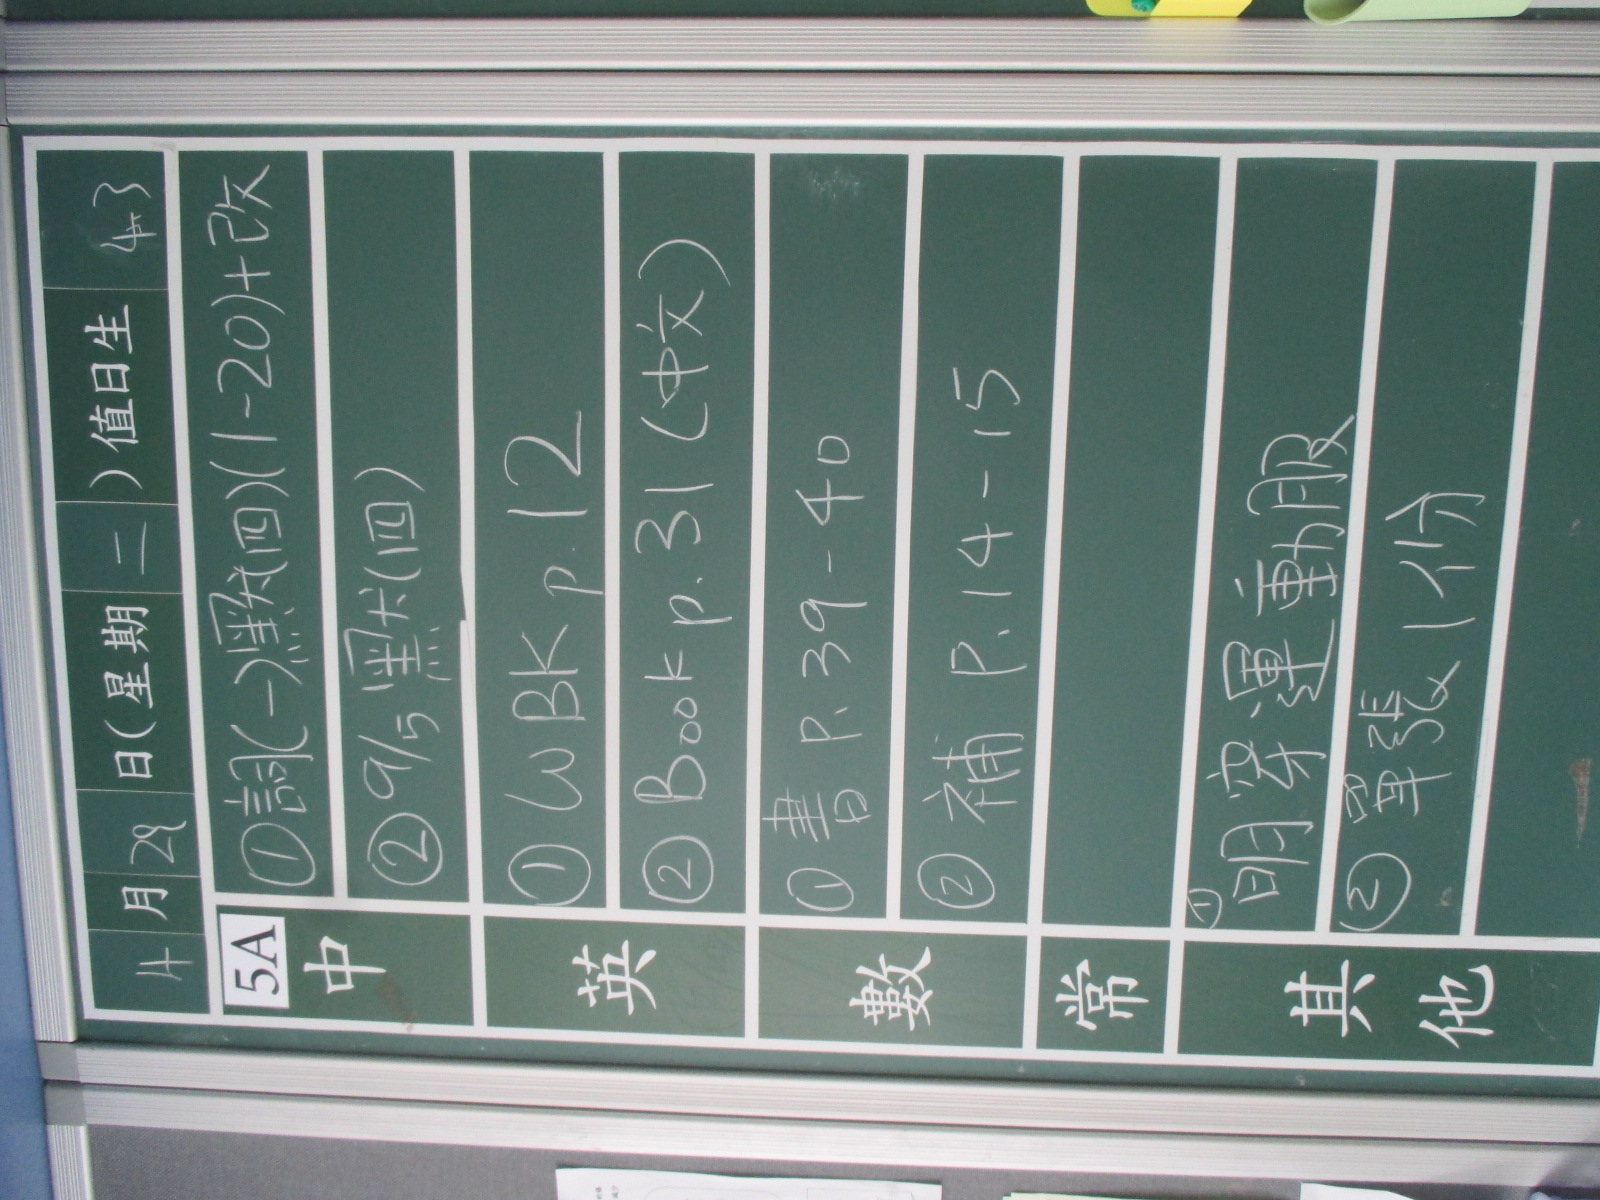 4月29日(星期二)值日生 43
5A
中
①詞(一)默(四)(1-20)+改
②9/5 默(四)
英
①WBK p.12
②Book p.31(中文)
數
①書 P.39-40
②補 P.14-15
常
其他
①明穿運動服
②單張1份